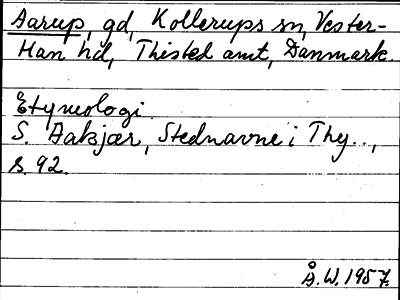 Aarup, gd, Kollerups sn, Vester-
Han hd, Thisted amt, Danmark.
Etymologi.
S. Aakjær, Stednavne i Thy..,
s. 92.
Å.W. 1957.